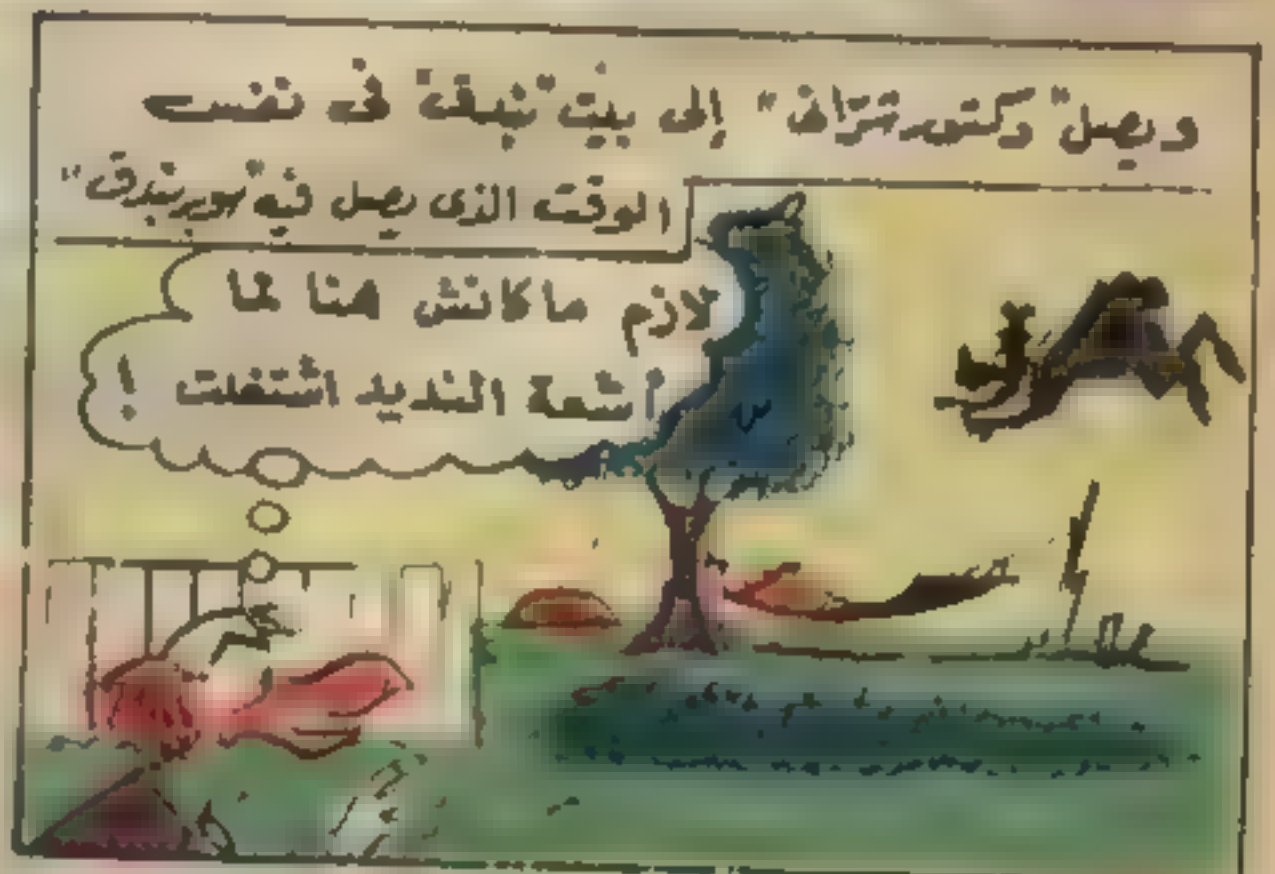 ويصل "دكتور تتراف" إلى بيت "نبقة" فى نفس
الوقت الذى يصل فيه "سوبر بندق"
لازم ماكانش هنا لما
أشعة التدييد اشتغلت !